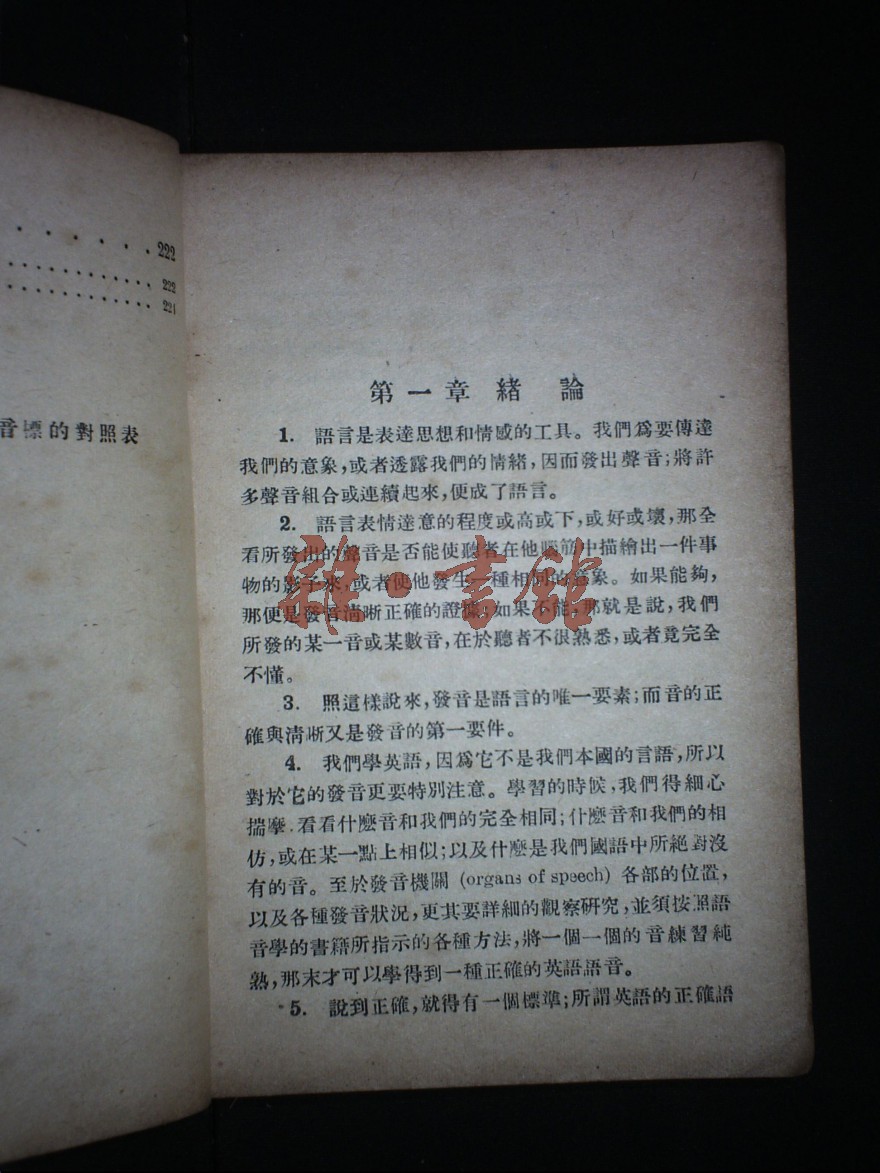 222
222
224
音標的對照表
第一章 緒 論
1. 語言是表達思想和情感的工具。我們爲要傳達
我們的意象,或者透露我們的情緒,因而發出聲音;將許
多聲音組合或連續起來,便成了語言。
2. 語言表情達意的程度或高或下,或好或壞,那全
看所發出的聲音是否能使聽者在他腦筋中描繪出一件事
物的影子來,或者使他發生一種相同的意象。如果能夠,
那便是發音清晰正確的證據;如果不能,那就是說,我們
所發的某一音或某數音,在於聽者不很熟悉,或者竟完全
不懂。
3. 照這樣說來,發音是語言的唯一要素;而音的正
確與清晰又是發音的第一要件。
4. 我們學英語,因爲它不是我們本國的言語,所以
對於它的發音更要特別注意。學習的時候,我們得細心
揣摩.看看什麽音和我們的完全相同;什麽音和我們的相
仿,或在某一點上相似;以及什麽是我們國語中所絕對沒
有的音。至於發音機關 (organs of speech) 各部的位置,
以及各種發音狀況,更其要詳細的觀察研究,並須按照語
音學的書籍所指示的各種方法,將一個一個的音練習純
熟,那末才可以學得到一種正確的英語語音。
5. 說到正確,就得有一個標準;所謂英語的正確語
雜·書館